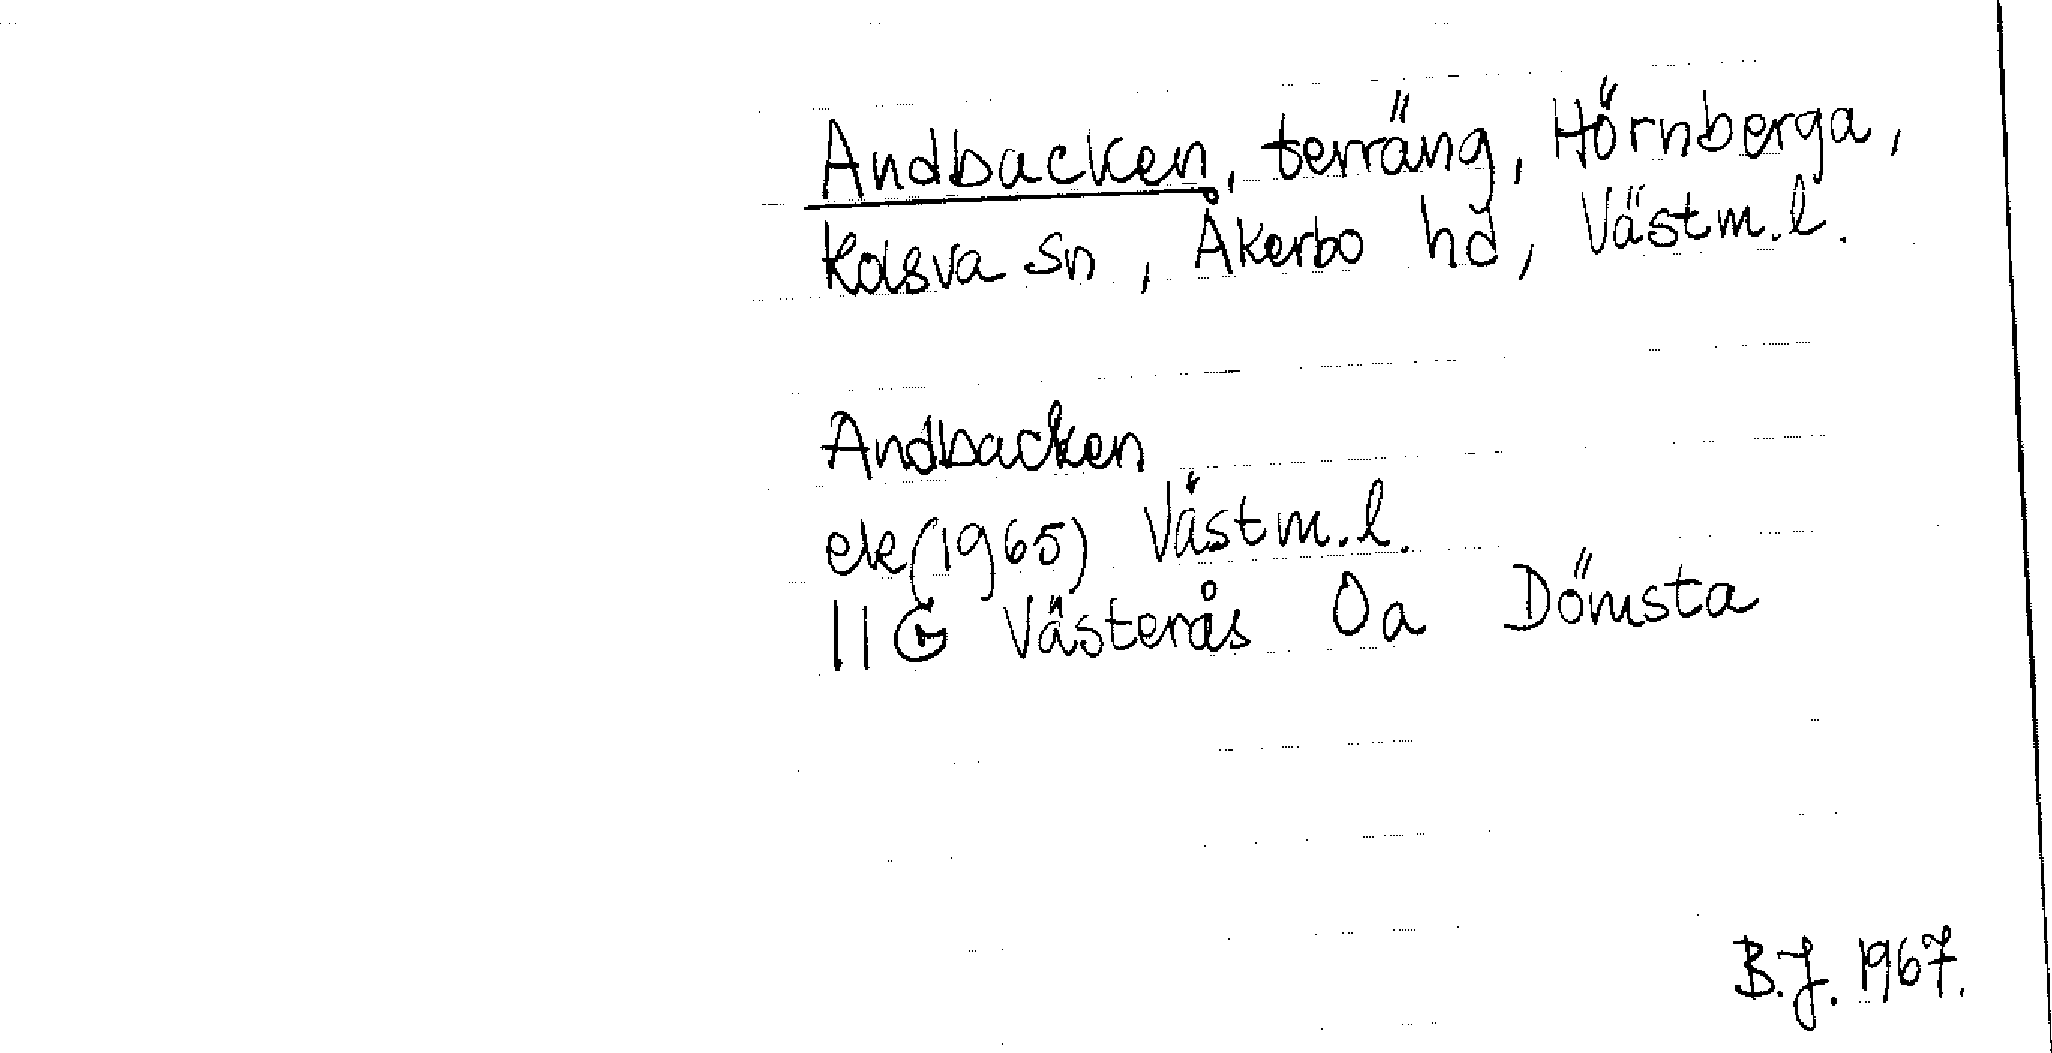 Andbacken, terräng, Hörnberga,
Kolsva sn, Åkerbo hd, Västm.l.
Andbacken
ek(1965) Västm.l.
11G Västerås 0a Dömsta
B.J. 1967.